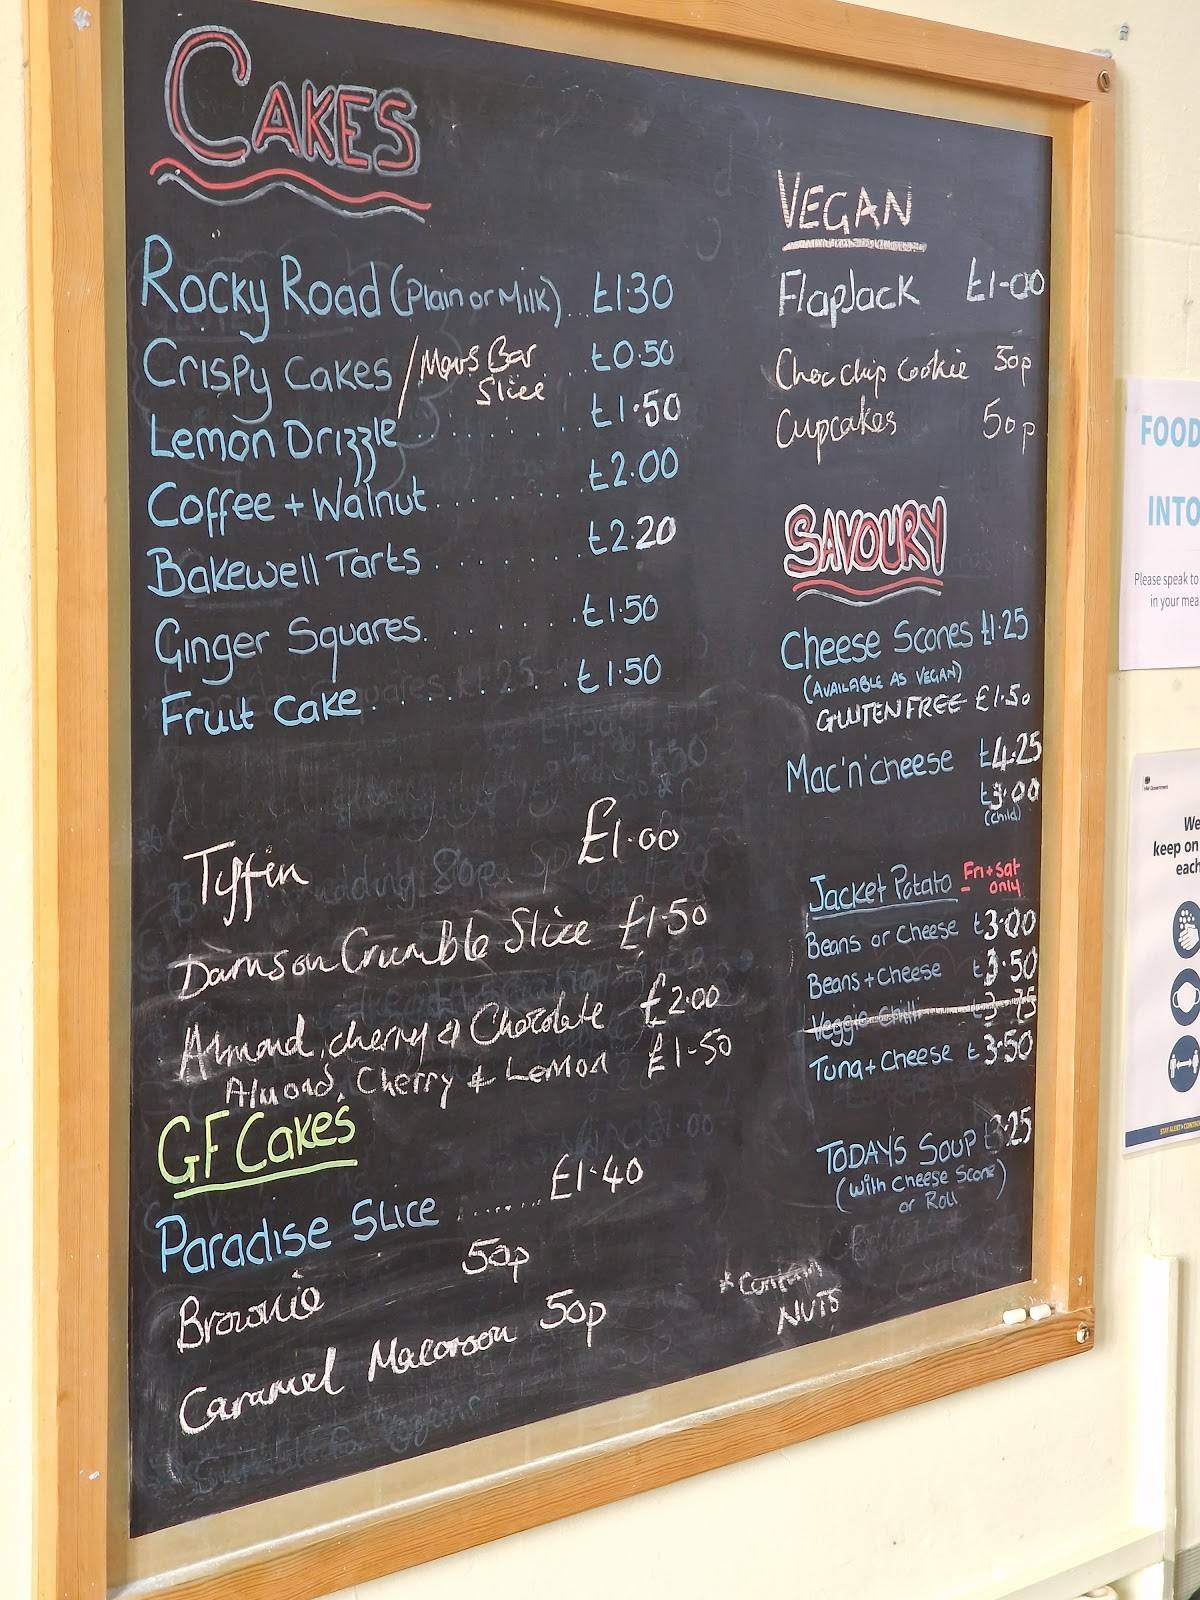 CAKES
Rocky Road (Plain or Milk).. £1.30
Crispy Cakes / Mars Bar Slice ... £0.50
Lemon Drizzle ......... £1.50
Coffee + Walnut ........ £2.00
Bakewell Tarts ........ £2.20
Ginger Squares ........ £1.50
Fruit Cake ......... £1.50
Tiffin £1.00
Damson Crumble Slice £1.50
Almond, cherry & Chocolate £2.00
Almond, Cherry & Lemon £1-50
GF Cakes
Paradise Slice ....... £1.40
Brownie 50p
Caramel Macaroon 50p
VEGAN
FlapJack £1-00
Choc chip cookie 50p
Cupcakes 50p
SAVOURY
Cheese Scones £1.25
(AVAILABLE AS VEGAN)
GLUTEN FREE £1.50
Mac'n'cheese £4.25
£3.00
(child)
Jacket Potato Fri + Sat only
Beans or Cheese £3.00
Beans + Cheese £3.50
Veggie Chilli £3.75
Tuna + Cheese £3.50
TODAYS SOUP £3.25
(with Cheese Scone
or Roll)
* Contain
NUTS
FOOD
INTO
Please speak to
in your mea
HM Government
We
keep on
each